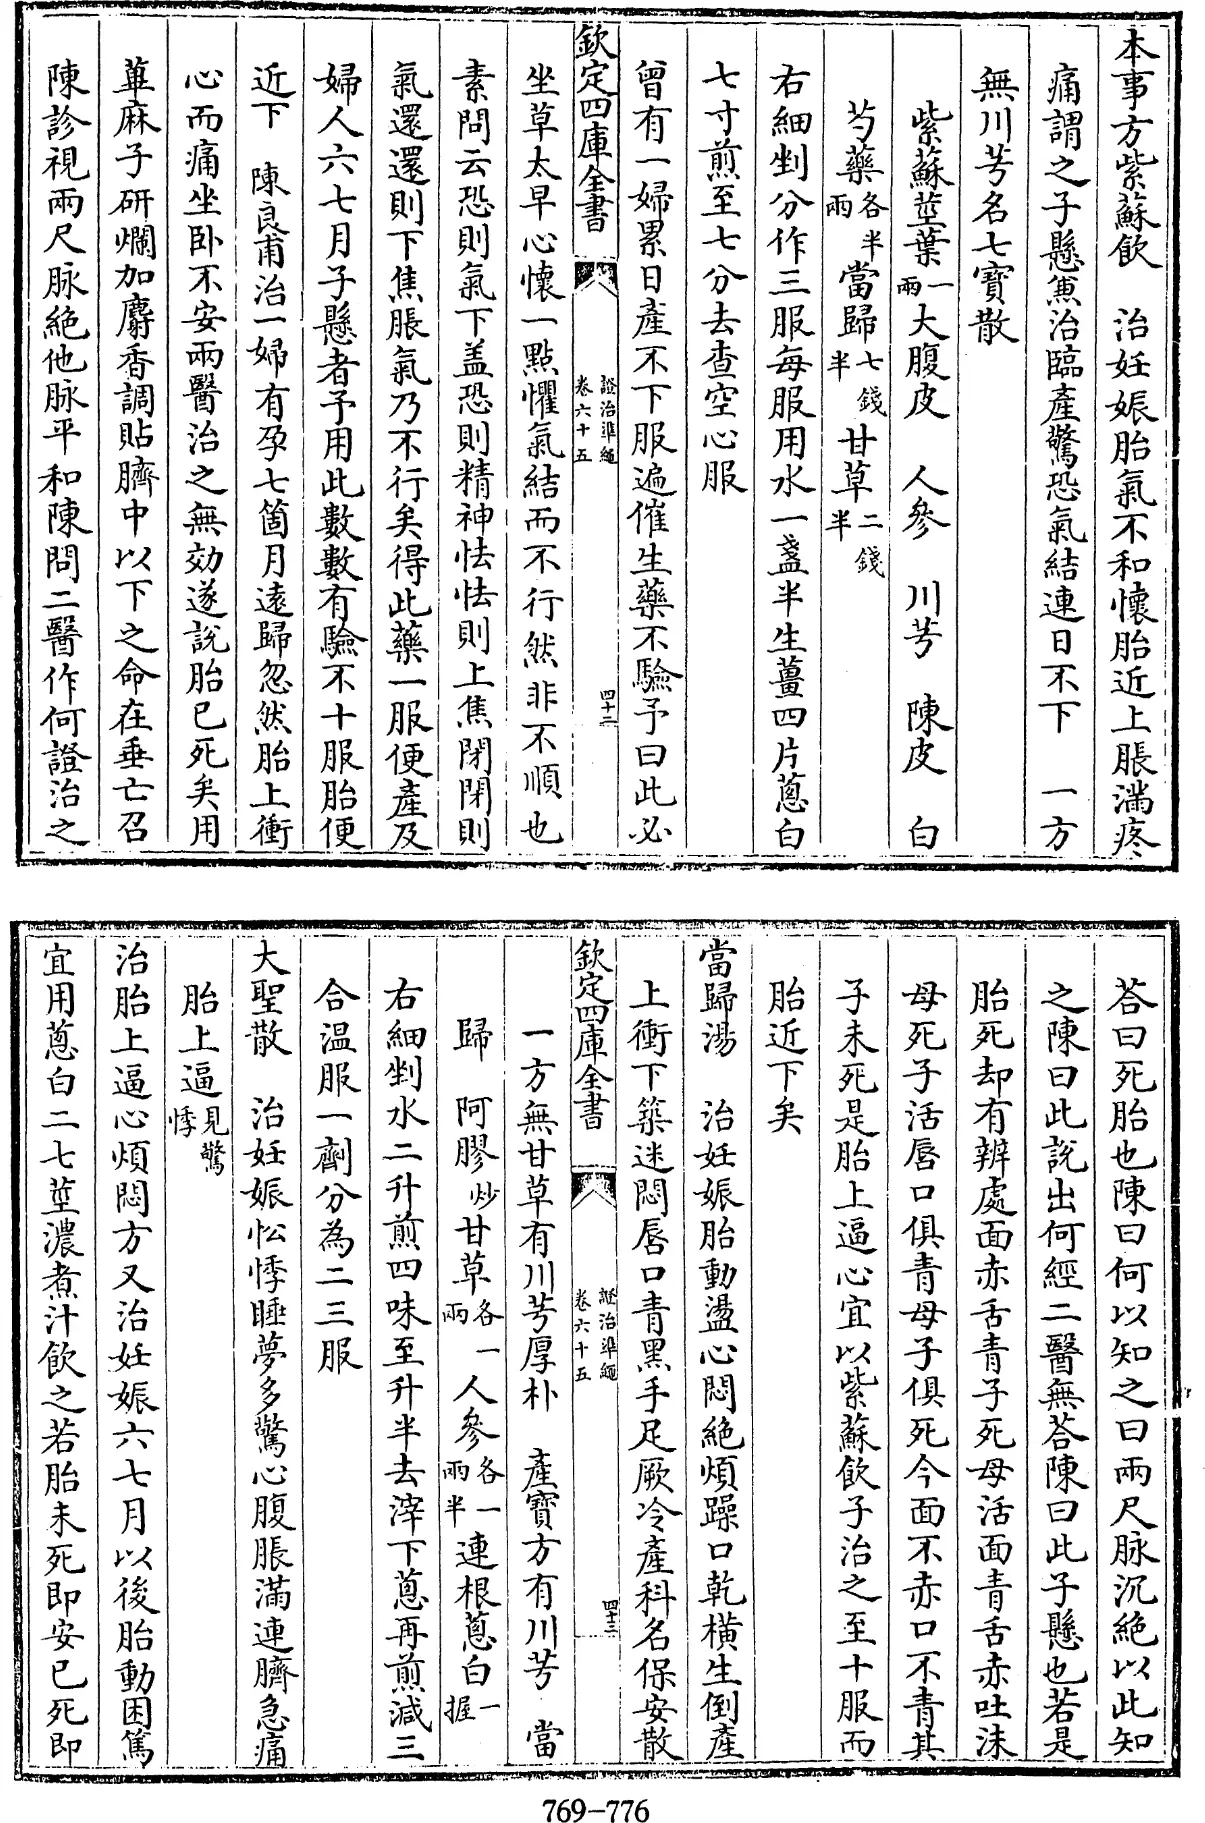 本事方紫蘇飲　治妊娠胎氣不和懷胎近上脹滿疼
痛謂之子懸兼治臨產驚恐氣結連日不下　一方
無川芎名七寶散
紫蘇莖葉一兩大腹皮　人參　川芎　陳皮　白
芍藥各半兩當歸七錢半甘草二錢半
右細剉分作三服每服用水一盞半生薑四片蔥白
七寸煎至七分去查空心服
曾有一婦累日產不下服遍催生藥不驗予曰此必
欽定四庫全書　證治準繩卷六十五　四十二
坐草太早心懷一點懼氣結而不行然非不順也
素問云恐則氣下盖恐則精神怯怯則上焦閉閉則
氣還還則下焦脹氣乃不行矣得此藥一服便產及
婦人六七月子懸者予用此數數有驗不十服胎便
近下　陳良甫治一婦有孕七箇月遠歸忽然胎上衝
心而痛坐卧不安兩醫治之無効遂說胎已死矣用
蓖麻子研爛加麝香調貼臍中以下之命在垂亡召
陳診視兩尺脉絶他脉平和陳問二醫作何證治之
荅曰死胎也陳曰何以知之曰兩尺脉沉絶以此知
之陳曰此說出何經二醫無荅陳曰此子懸也若是
胎死却有辨處面赤舌青子死母活面青舌赤吐沫
母死子活唇口俱青母子俱死今面不赤口不青其
子未死是胎上逼心宜以紫蘇飲子治之至十服而
胎近下矣
當歸湯　治妊娠胎動盪心悶絶煩躁口乾橫生倒產
上衝下築迷悶唇口青黑手足厥冷產科名保安散
欽定四庫全書　證治準繩卷六十五　四十三
一方無甘草有川芎厚朴　產寳方有川芎　當
歸　阿膠炒甘草各一兩人參各一兩半連根蔥白一握
右細剉水二升煎四味至升半去滓下蔥再煎減三
合温服一劑分為二三服
大聖散　治妊娠忪悸睡夢多驚心腹脹滿連臍急痛
胎上逼見驚悸
治胎上逼心煩悶方又治妊娠六七月以後胎動困篤
宜用蔥白二七莖濃煮汁飲之若胎未死即安已死即
769-776